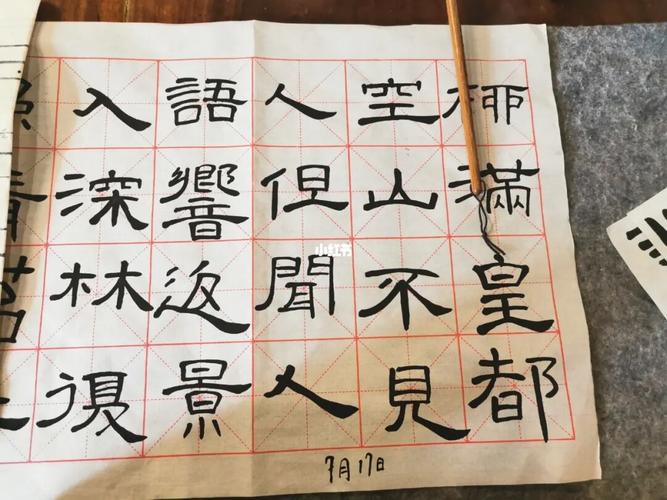 柳滿皇都
空山不見
人但聞人
語響返景
入深林復
7月17日
小红书